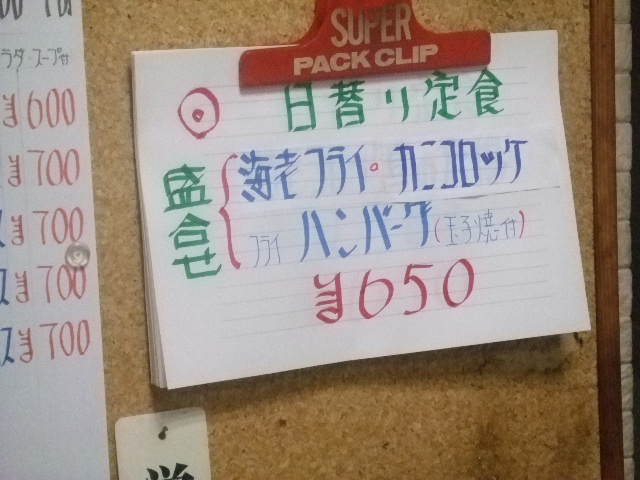 SUPER
PACK CLIP
日替り定食
盛合せ
海老フライ・カニコロッケ
フライ ハンバーグ(玉子焼付)
¥650
ラダ・スープ付
¥600
¥700
¥700
ス¥700
ス¥700